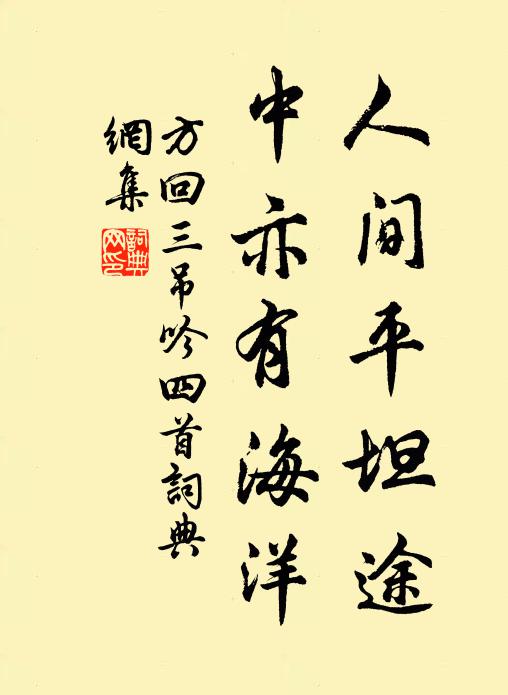 人间平坦途
中亦有海洋
方回三吊吟四首詞典
網集
詞典
网印